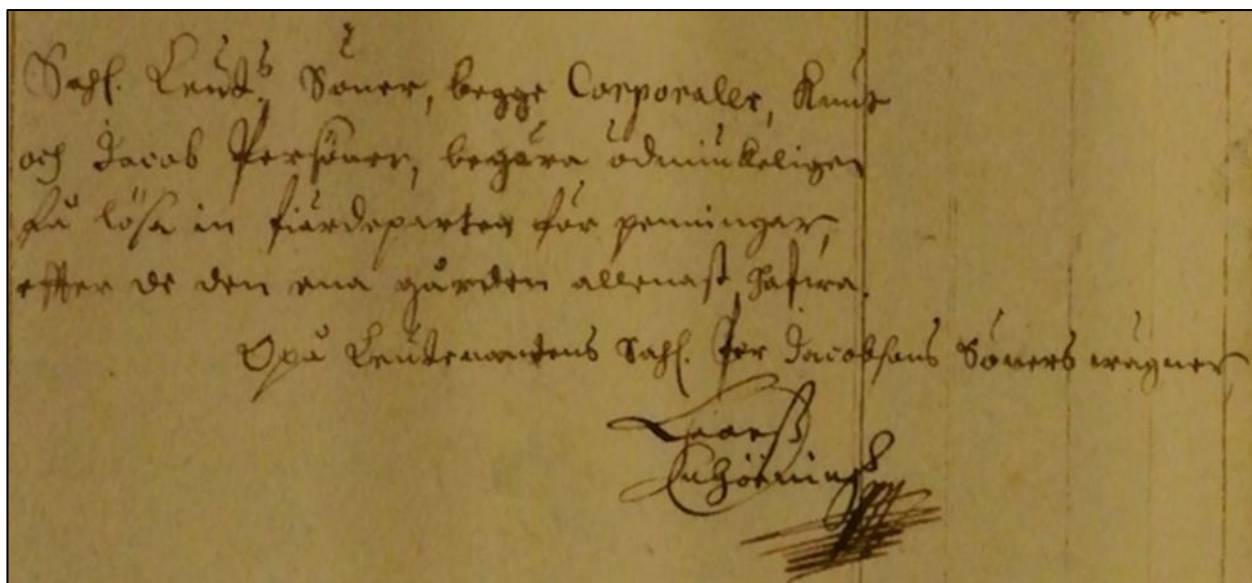 Sahl. Leut:s Söner, begge Corporaler, Knut
och Jacob Persöner, begära ödmiukeligen
få lösa in fiärdeparten för penningar,
effter de den ena gården allenast hafwa.
Opå Leutenantens Sahl. Per Jacobsons Söners wägner
Laarß
Enhörningh